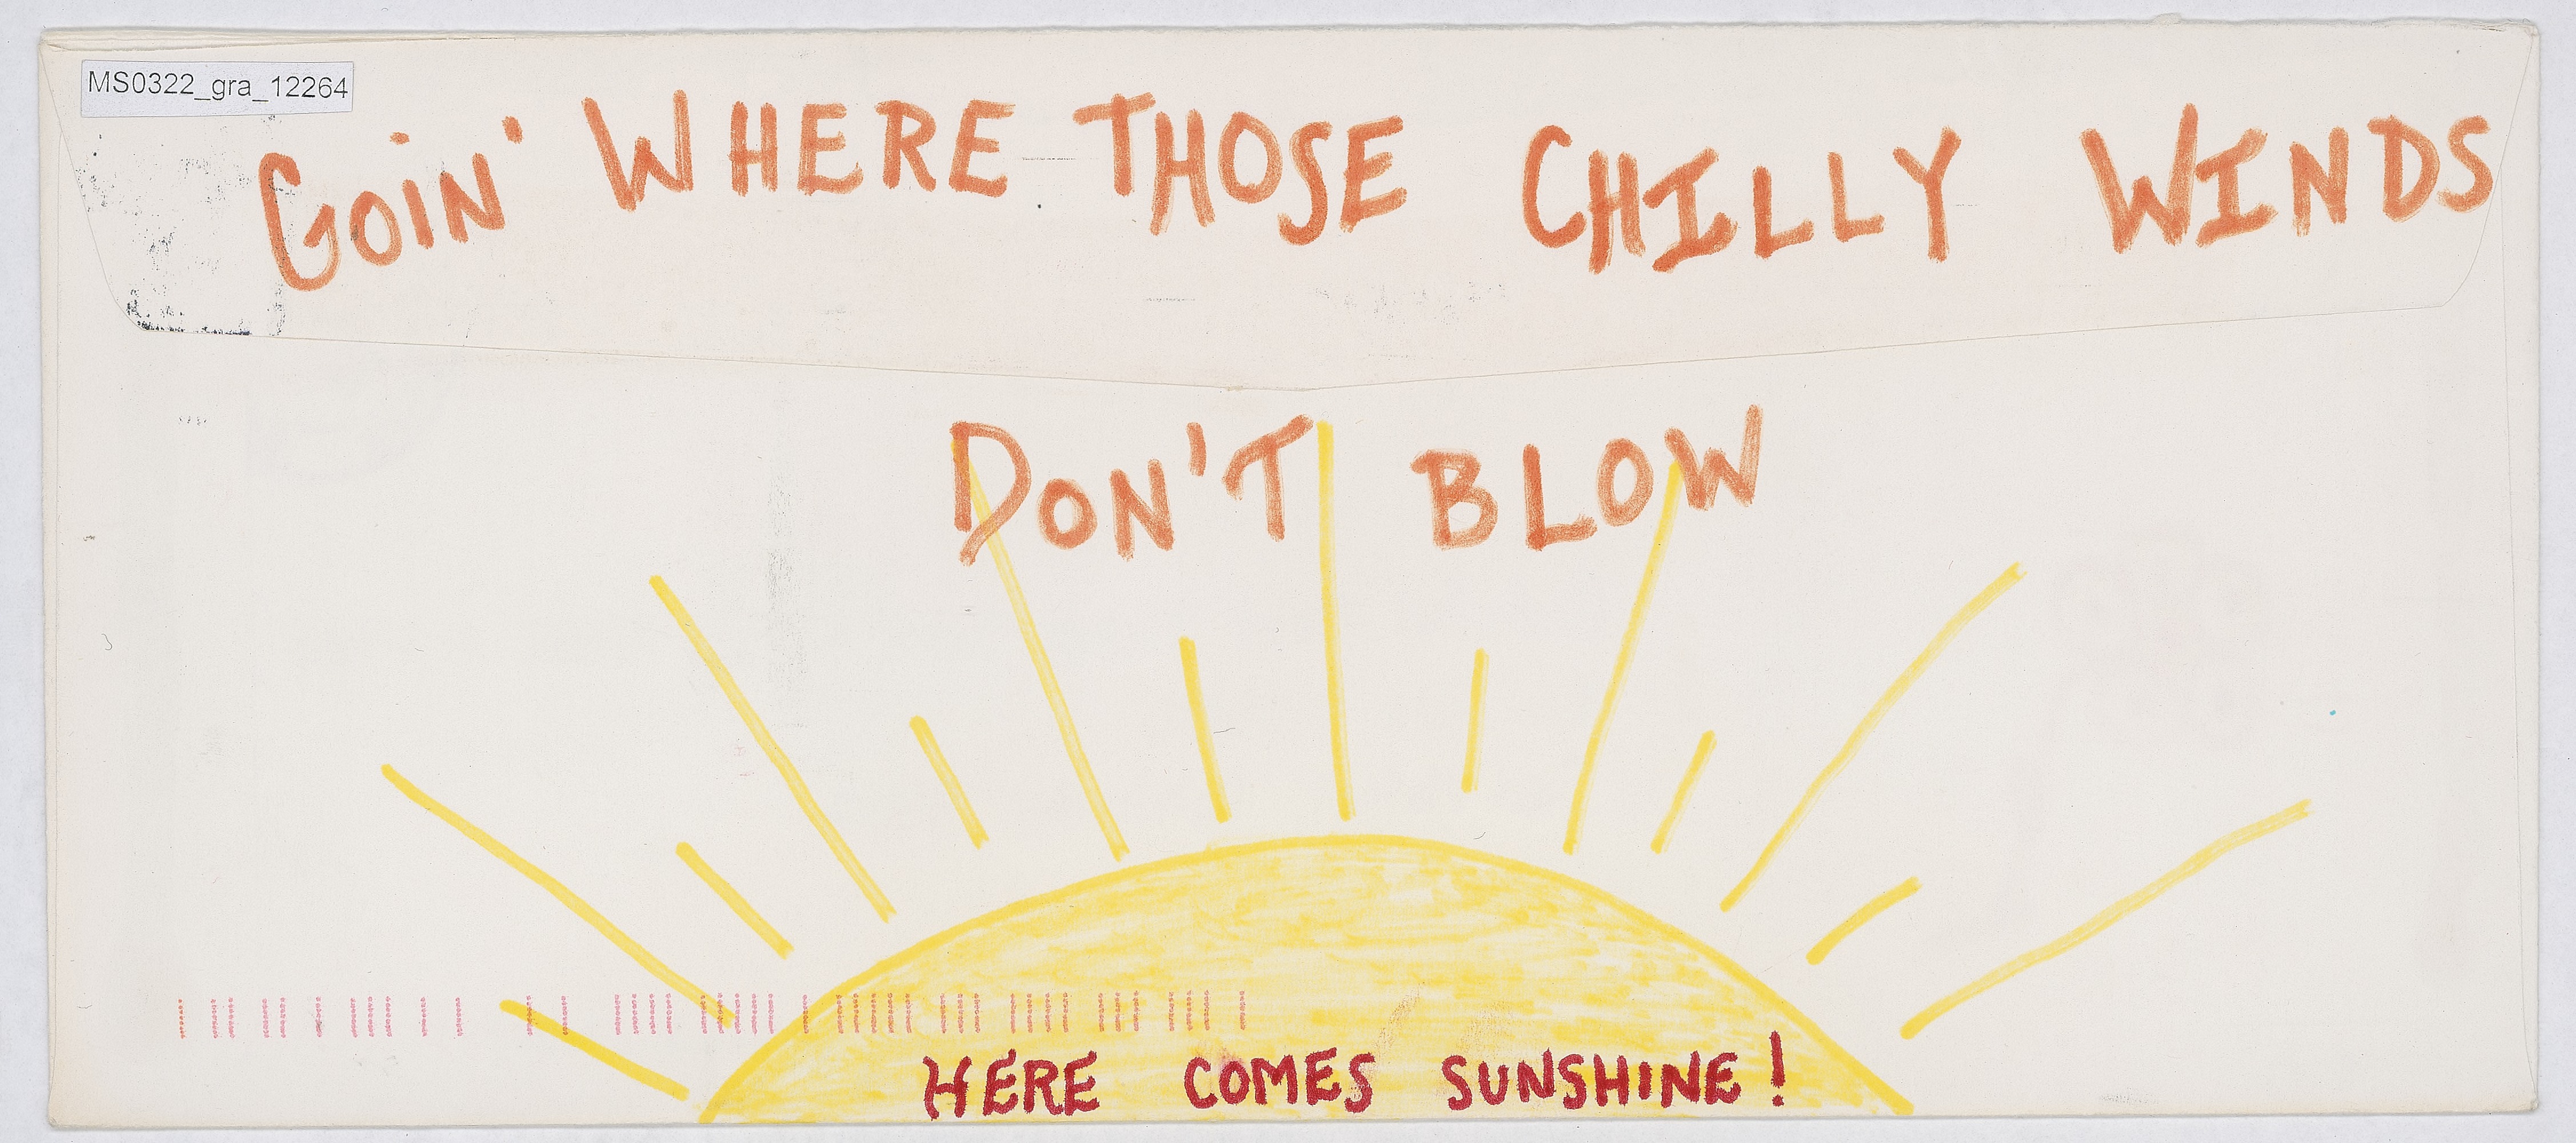 MS0322_gra_12264
GOIN' WHERE THOSE CHILLY WINDS
DON'T BLOW
HERE COMES SUNSHINE!